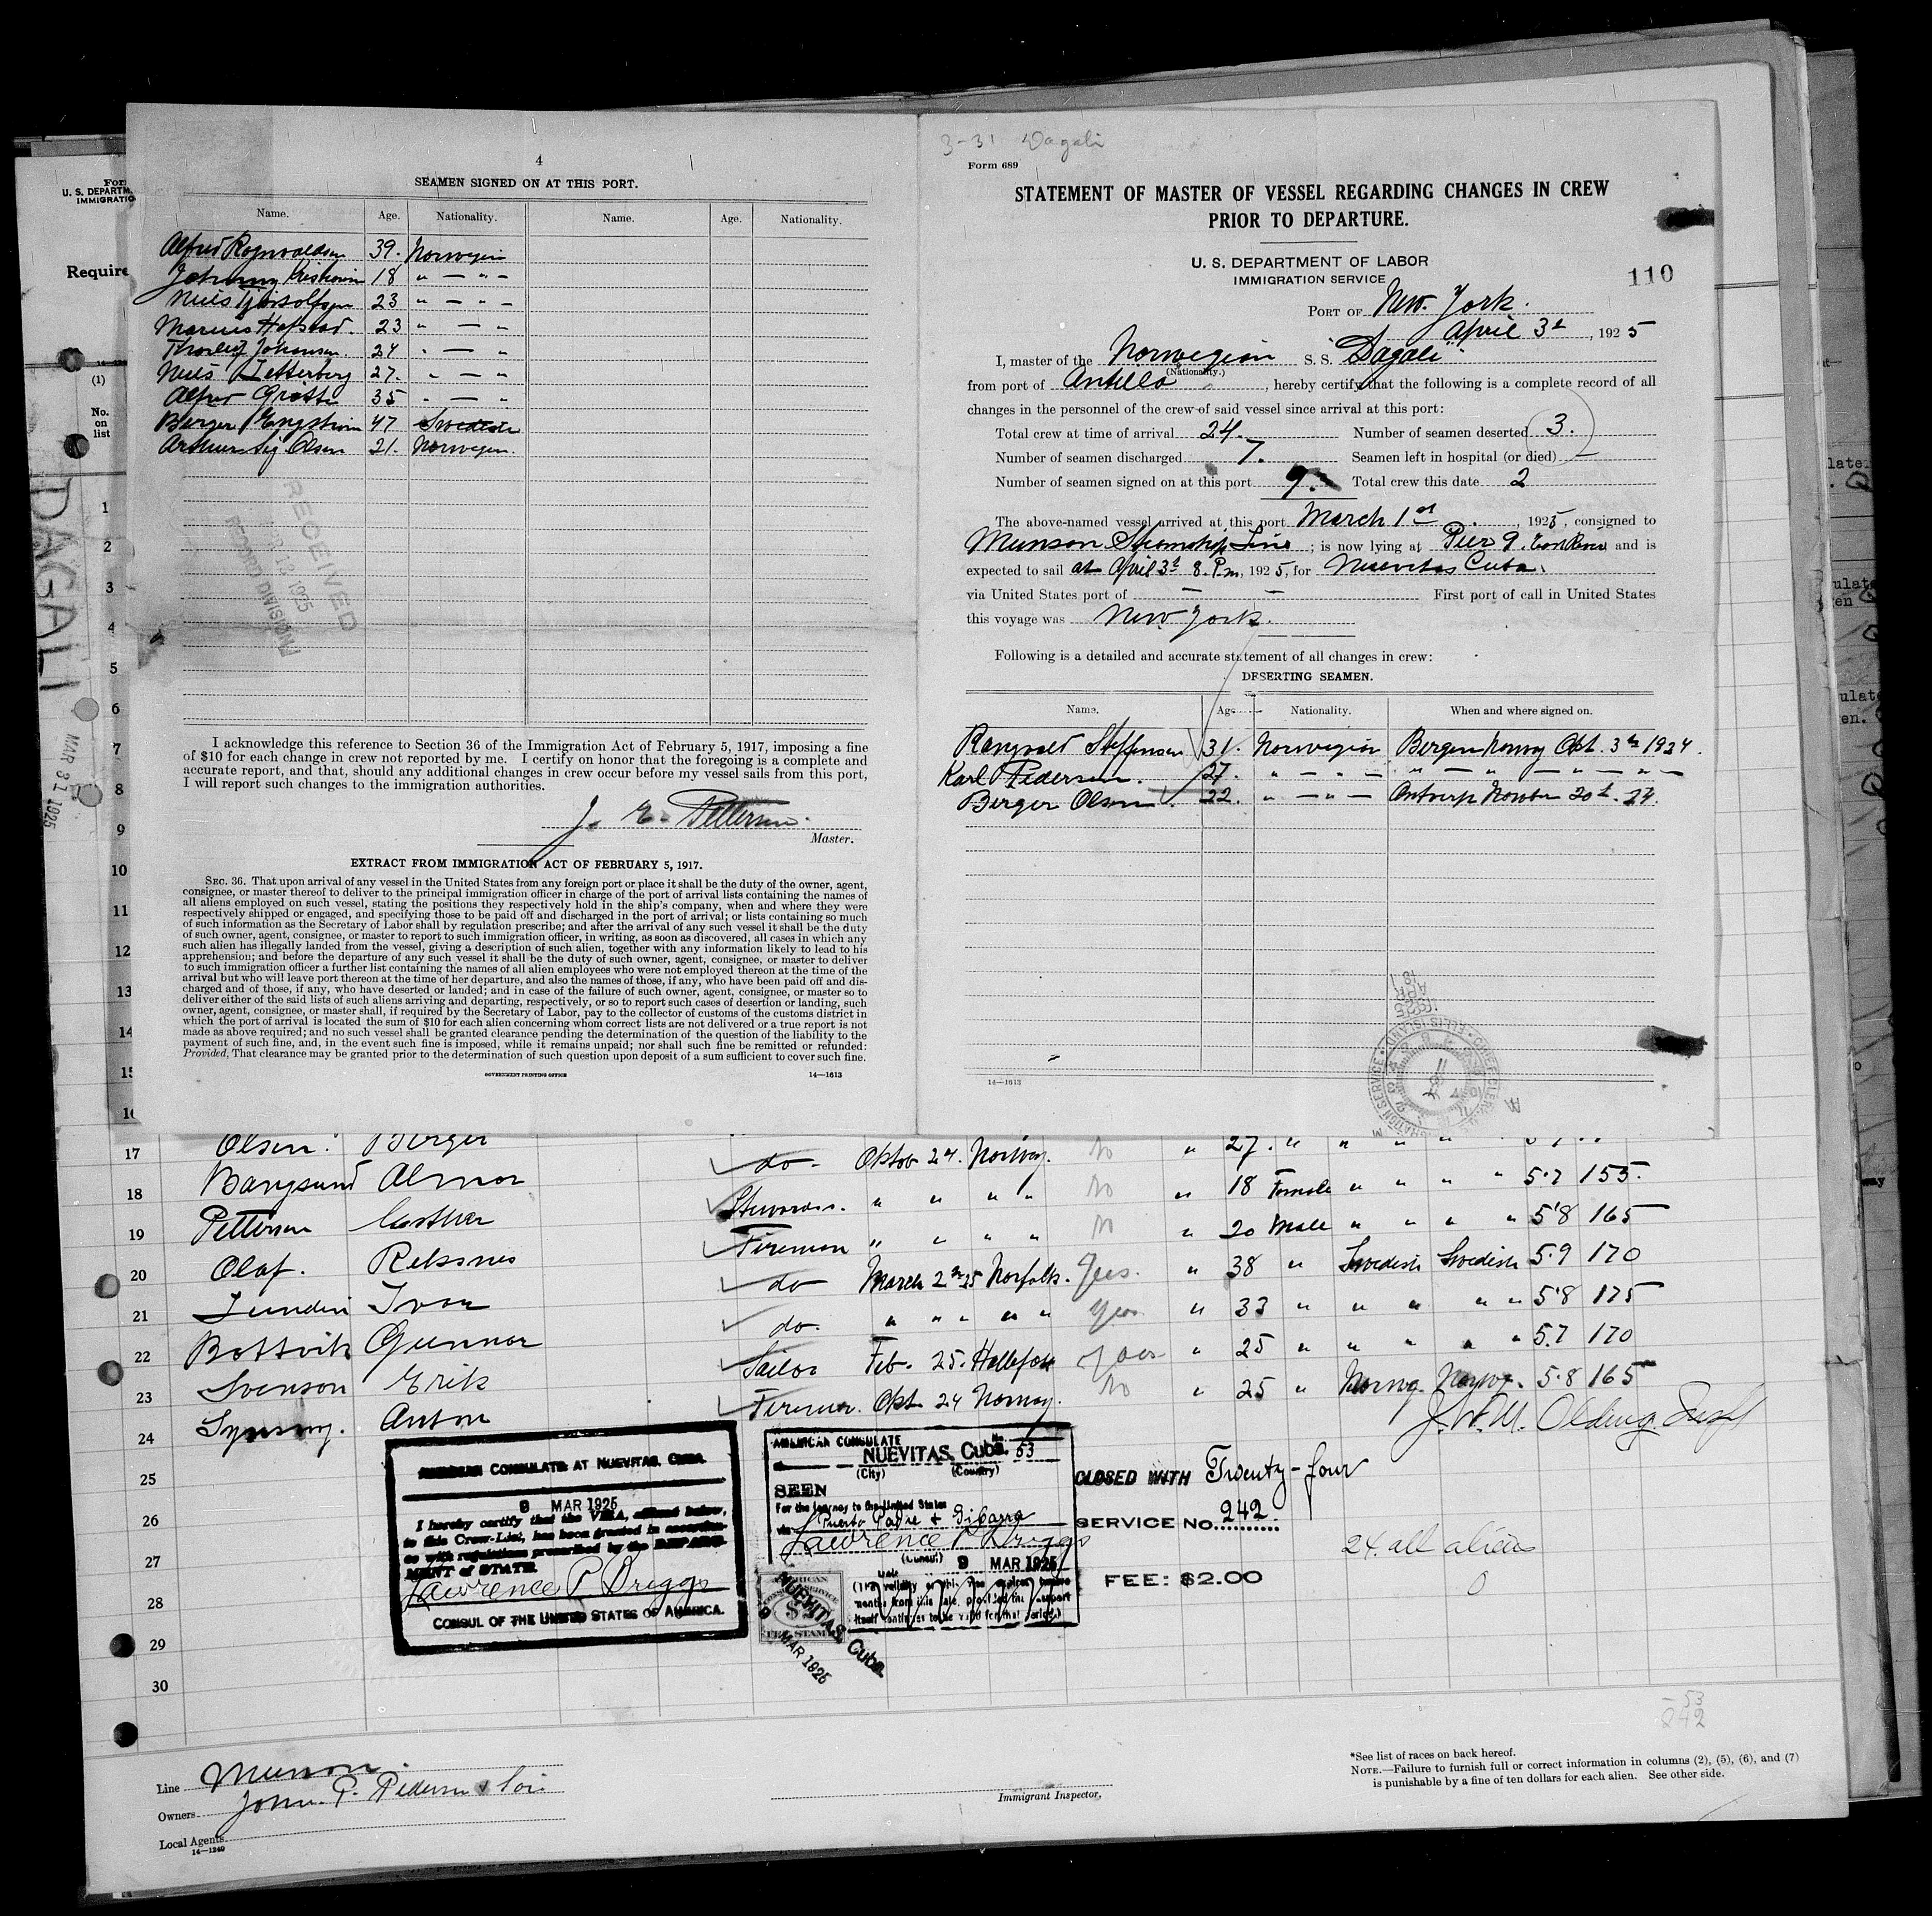 4
SEAMEN SIGNED ON AT THIS PORT.
Name. Age. Nationality. Name. Age. Nationality.
Alfred 39. Norwegian
Johnny 18 " — " —
Niels 23 " — " —
Marius Hofstad. 23 " — "
Thorleif Johansen 24 " — "
Niels Zetterberg 27. " — "
Alfred 35 " — "
Berger Engstrøm 47 Swedish
Arthur Sig Olsen 21. Norwegian
RECEIVED
1925
RECORD DIVISION
I acknowledge this reference to Section 36 of the Immigration Act of February 5, 1917, imposing a fine
of $10 for each change in crew not reported by me. I certify on honor that the foregoing is a complete and
accurate report, and that, should any additional changes in crew occur before my vessel sails from this port,
I will report such changes to the immigration authorities.
J. E. Petterson.
Master.
EXTRACT FROM IMMIGRATION ACT OF FEBRUARY 5, 1917.
SEC. 36. That upon arrival of any vessel in the United States from any foreign port or place it shall be the duty of the owner, agent,
consignee, or master thereof to deliver to the principal immigration officer in charge of the port of arrival lists containing the names of
all aliens employed on such vessel, stating the positions they respectively hold in the ship's company, when and where they were
respectively shipped or engaged, and specifying those to be paid off and discharged in the port of arrival; or lists containing so much
of such information as the Secretary of Labor shall by regulation prescribe; and after the arrival of any such vessel it shall be the duty
of such owner, agent, consignee, or master to report to such immigration officer, in writing, as soon as discovered, all cases in which any
such alien has illegally landed from the vessel, giving a description of such alien, together with any information likely to lead to his
apprehension; and before the departure of any such vessel it shall be the duty of such owner, agent, consignee, or master to deliver
to such immigration officer a further list containing the names of all alien employees who were not employed thereon at the time of the
arrival but who will leave port thereon at the time of her departure, and also the names of those, if any, who have been paid off and dis-
charged and of those, if any, who have deserted or landed; and in case of the failure of such owner, agent, consignee, or master so to
deliver either of the said lists of such aliens arriving and departing, respectively, or so to report such cases of desertion or landing, such
owner, agent, consignee, or master shall, if required by the Secretary of Labor, pay to the collector of customs of the customs district in
which the port of arrival is located the sum of $10 for each alien concerning whom correct lists are not delivered or a true report is not
made as above required; and no such vessel shall be granted clearance pending the determination of the question of the liability to the
payment of such fine, and, in the event such fine is imposed, while it remains unpaid; nor shall such fine be remitted or refunded:
Provided, That clearance may be granted prior to the determination of such question upon deposit of a sum sufficient to cover such fine.
GOVERNMENT PRINTING OFFICE 14—1613
3-31 Dagali
Form 689
STATEMENT OF MASTER OF VESSEL REGARDING CHANGES IN CREW
PRIOR TO DEPARTURE.
U. S. DEPARTMENT OF LABOR
IMMIGRATION SERVICE
110
PORT OF New York.
April 3d, 1925
I, master of the Norwegian S. S. "Dagali"
(Nationality.)
from port of Antilla, hereby certify that the following is a complete record of all
changes in the personnel of the crew of said vessel since arrival at this port:
Total crew at time of arrival 24. Number of seamen deserted 3.
Number of seamen discharged 7. Seamen left in hospital (or died) —
Number of seamen signed on at this port 9. Total crew this date 2
The above-named vessel arrived at this port March 1st, 1925, consigned to
Munson Steamship Line; is now lying at Pier 9. East River and is
expected to sail at April 3d 8. P.m, 1925, for Nuevitas Cuba.
via United States port of — — First port of call in United States
this voyage was New York.
Following is a detailed and accurate statement of all changes in crew:
DESERTING SEAMEN.
Name. Age. Nationality. When and where signed on.
Rangvald Steffensen 31. Norwegian Bergen Norway Okt. 3th 1924.
Karl Pedersen. 27. " — " — " — " — " — " —
Berger Olsen 22. " — " — Antwerp 20t. 24.
14—1613
For
U. S. DEPARTM
IMMIGRATIO
Require
(1)
No.
on
list
DAGALI
MAR 31 1925
1
2
3
4
5
6
7
8
9
10
11
12
13
14
15
16
17 Olsen. Birger do- Oktob 24. Norway. No " 27. " " " "
18 Bangsund Almar Stewardess. " " " " No " 18 Female " " " " 5.7 155.
19 Petterson Esther Firemen " " " " No " 20 Male " " " " 5'8 165
20 Olaf. Reksnes do March 2nd 25 Norfolk. Yes. " 38 " Swedish Swedish 5.9 170
21 Lundin Ivar do. " " " " " Yes " 33 " " " " " 5'8 175
22 Bottvik Gunnar Sailor Feb. 25. Yes " 25 " " " " " 5.7 170
23 Svenson Erik Fireman. Okt 24 Norway. No " 25 " Norwg. Norwg. 5.8 165
24 Anton
25
26
27
28
29
30
AMERICAN CONSULATE AT NUEVITAS, CUBA.
9 MAR 1925
I hereby certify that the VISA, affixed below,
to this Crew-List, has been granted in accordan-
ce with regulations prescribed by the DEPART-
MENT of STATE.
Lawrence P Briggs
CONSUL OF THE UNITED STATES OF AMERICA.
AMERICAN CONSULATE No. 53
NUEVITAS, Cuba.
(City) (Country)
SEEN
For the journey to the United States
via Puerto Padre & Gibara
Lawrence P Briggs
(Consul)
Date 9 MAR 1925
NUEVITAS, Cuba.
FEE STAMP
MAR 1925
CLOSED WITH Twenty-four
SERVICE No. 242
FEE: $2.00
24. all aliens
0
53
242
Line Munson.
Owners John. P. Pedersen & Son.
Local Agents
14—1240
Immigrant Inspector.
*See list of races on back hereof.
NOTE.—Failure to furnish full or correct information in columns (2), (5), (6), and (7)
is punishable by a fine of ten dollars for each alien. See other side.